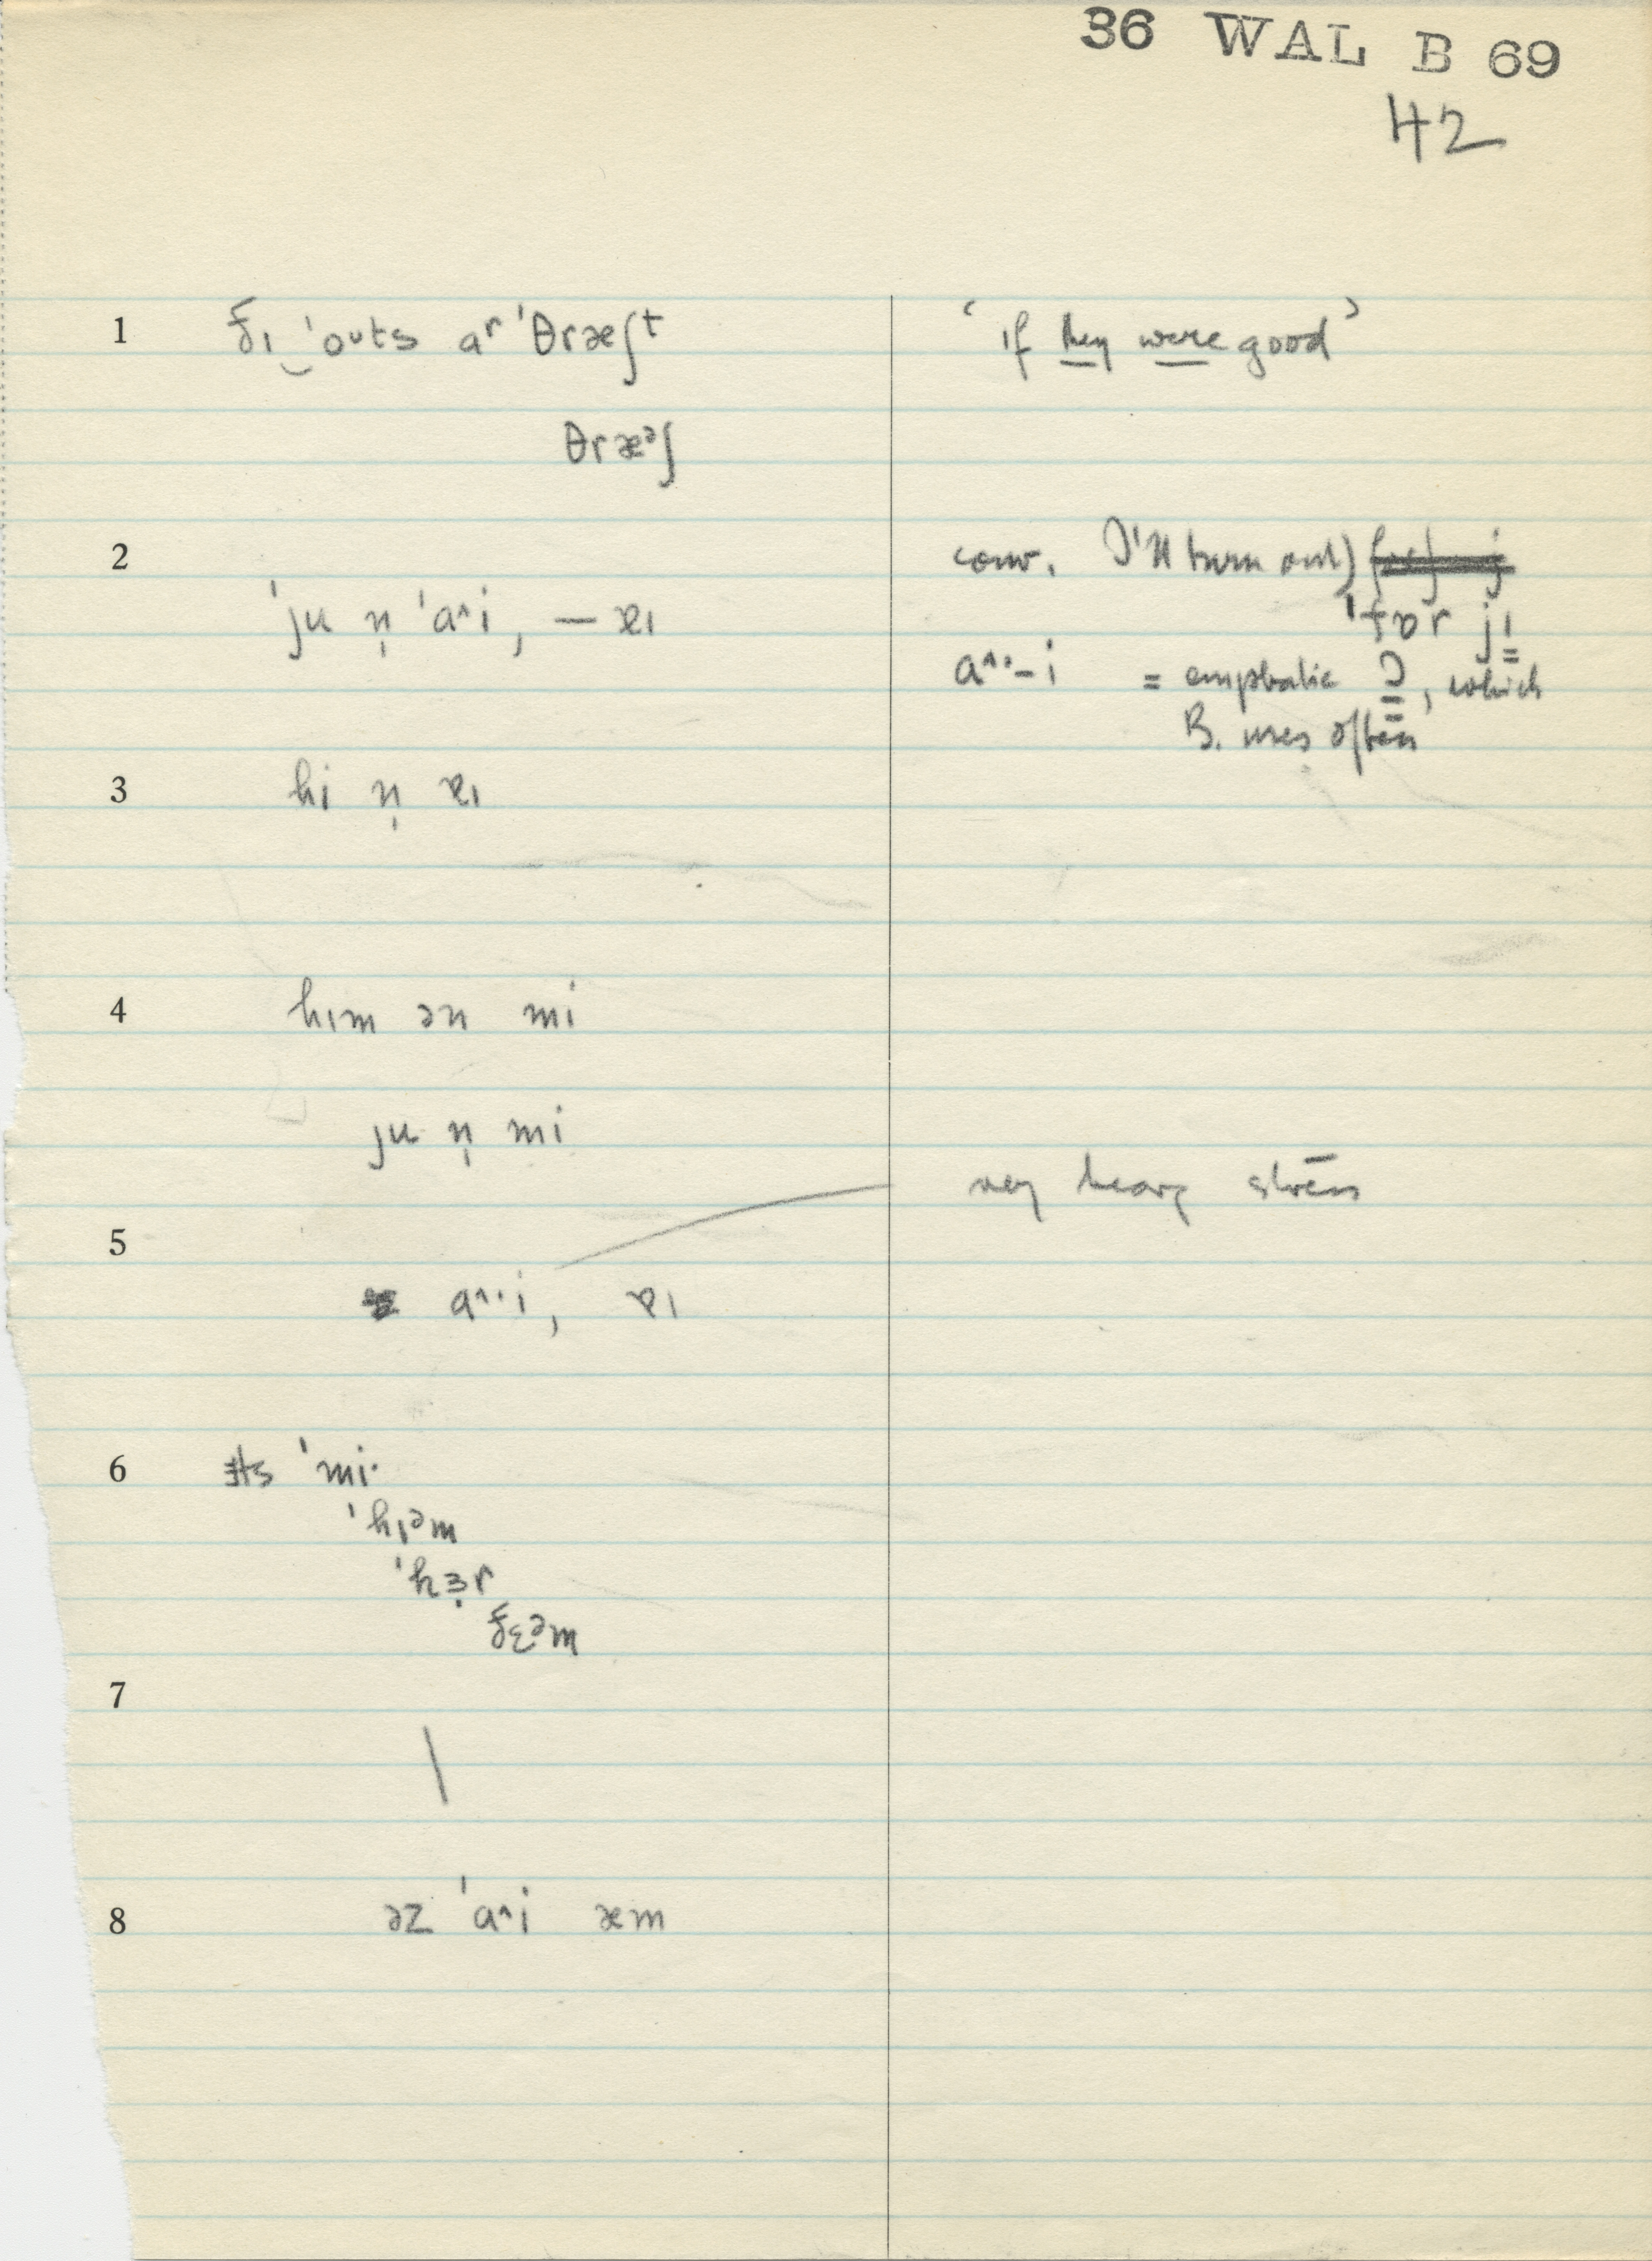 36 WAL B 69
42
1 ðɪ‿ˈoᵘts aʳ ˈθræʃᵗ ‘if they were good’
θræᵊʃ
2 conv. I'll turn out)
ˈju n̩ ˈaᶺi, — ɐɪ ˈfɒr jɪ
aᶺ·-i = emphatic I, which
B. uses often
3 hi n̩ ɐɪ
4 hɪm ən mi
ju n̩ mi
very heavy stress
5 aᶺ·i, ɐɪ
6 ɪts ˈmi·
ˈhɪᵊm
ˈhɜ̣r
ðɛᵊm
7 \
8 əz ˈaᶺi æm